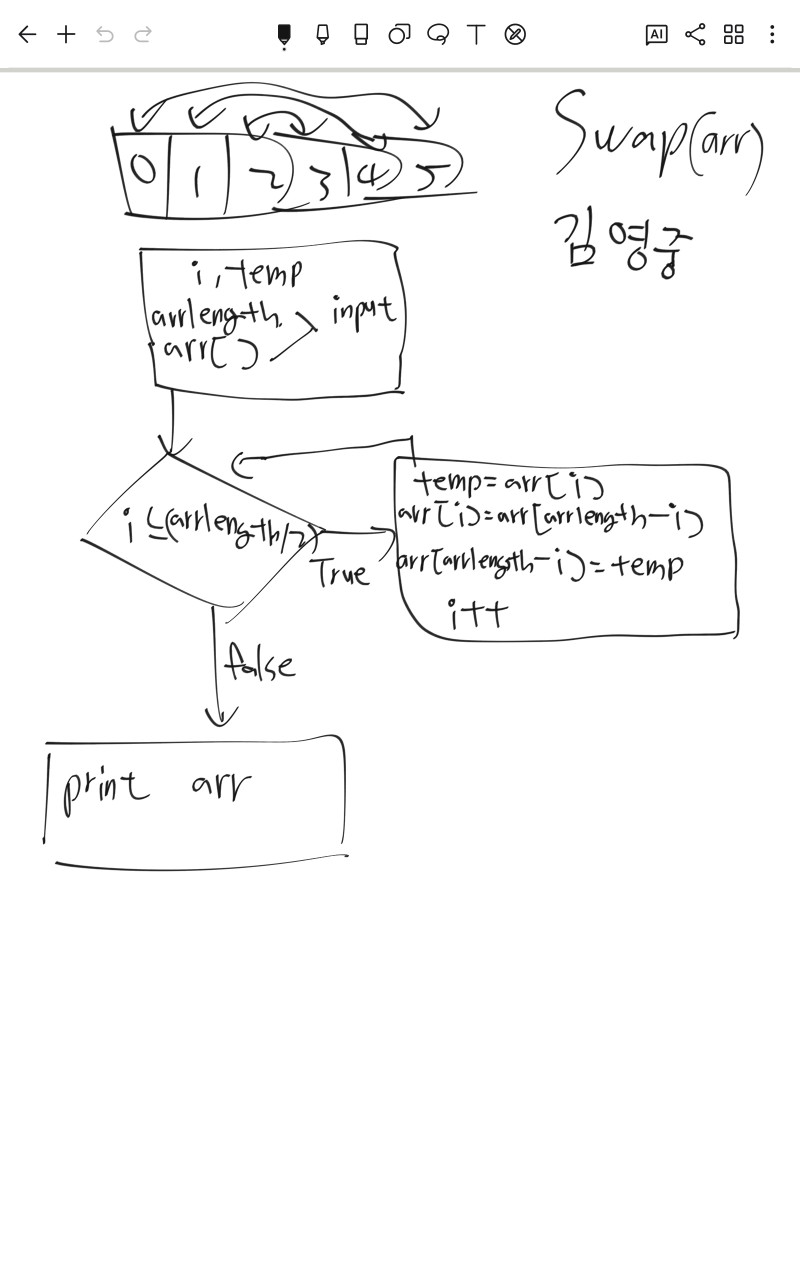 Swap(arr)
김영중
0 1 2 3 4 5
i, temp
arrlength
arr[]
input
i ≤ (arrlength/2)
True
temp = arr[i]
arr[i] = arr[arrlength-i]
arr[arrlength-i] = temp
i++
false
print arr
T
AI